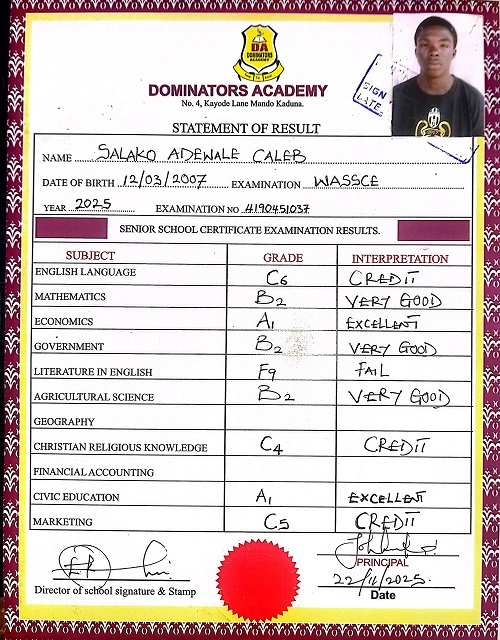 DA
DOMINATORS
ACADEMY
DOMINATORS ACADEMY
No. 4, Kayode Lane Mando Kaduna.
SIGN
DATE
STATEMENT OF RESULT
NAME SALAKO ADEWALE CALEB
DATE OF BIRTH 12/03/2007 EXAMINATION WASSCE
YEAR 2025 EXAMINATION NO 4190451037
SENIOR SCHOOL CERTIFICATE EXAMINATION RESULTS.
SUBJECT GRADE INTERPRETATION
ENGLISH LANGUAGE C6 CREDIT
MATHEMATICS B2 VERY GOOD
ECONOMICS A1 EXCELLENT
GOVERNMENT B2 VERY GOOD
LITERATURE IN ENGLISH F9 FAIL
AGRICULTURAL SCIENCE B2 VERY GOOD
GEOGRAPHY
CHRISTIAN RELIGIOUS KNOWLEDGE C4 CREDIT
FINANCIAL ACCOUNTING
CIVIC EDUCATION A1 EXCELLENT
MARKETING C5 CREDIT
PRINCIPAL
22/11/2025.
Director of school signature & Stamp Date